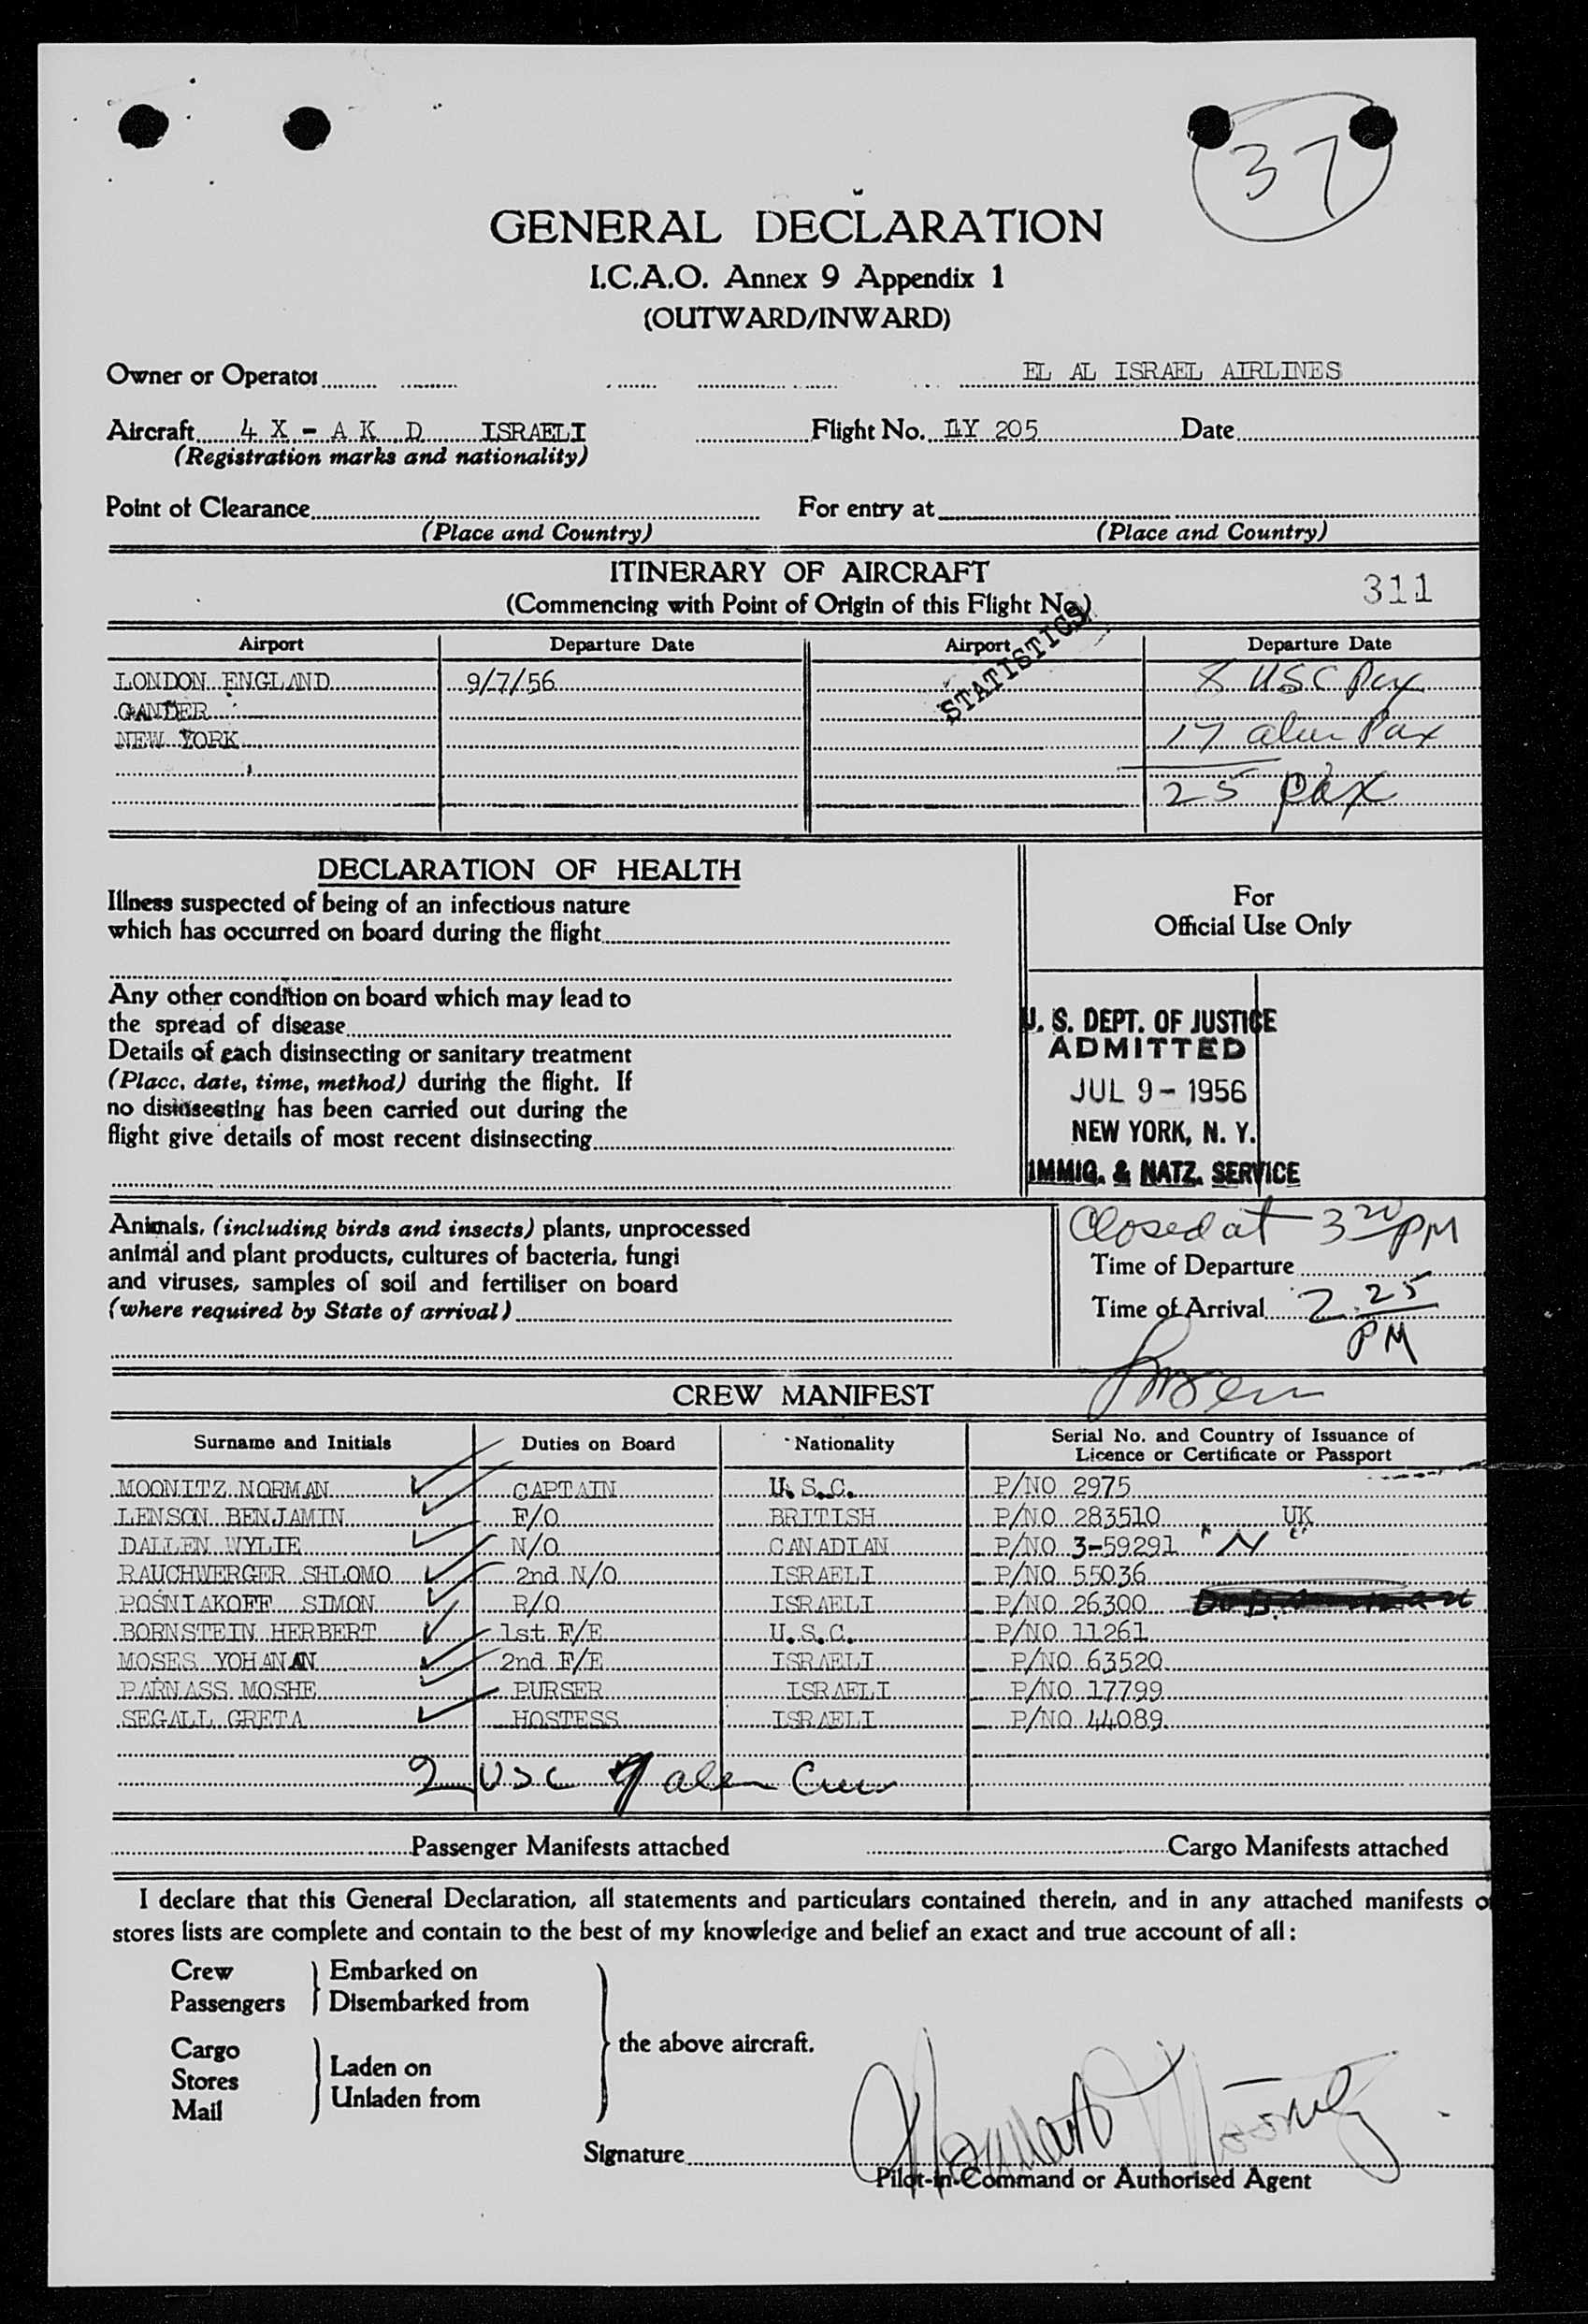 37
GENERAL DECLARATION
I.C.A.O. Annex 9 Appendix 1
(OUTWARD/INWARD)
Owner or Operator EL AL ISRAEL AIRLINES
Aircraft 4 X - A K D ISRAELI Flight No. LY 205 Date
(Registration marks and nationality)
Point of Clearance For entry at
(Place and Country) (Place and Country)
ITINERARY OF AIRCRAFT
311
(Commencing with Point of Origin of this Flight No.)
STATISTICS
Airport Departure Date Airport Departure Date
LONDON ENGLAND 9/7/56 8 USC Pax
GANDER
NEW YORK 17 alien Pax
25 pax
DECLARATION OF HEALTH
Illness suspected of being of an infectious nature
which has occurred on board during the flight
For
Official Use Only
Any other condition on board which may lead to
the spread of disease
Details of each disinsecting or sanitary treatment
(Place, date, time, method) during the flight. If
no disinsecting has been carried out during the
flight give details of most recent disinsecting
U. S. DEPT. OF JUSTICE
ADMITTED
JUL 9 - 1956
NEW YORK, N. Y.
IMMIG. & NATZ. SERVICE
Animals, (including birds and insects) plants, unprocessed
animal and plant products, cultures of bacteria, fungi
and viruses, samples of soil and fertiliser on board
(where required by State of arrival)
Closed at 3 20 PM
Time of Departure
Time of Arrival 2 25 PM
CREW MANIFEST
Surname and Initials Duties on Board Nationality Serial No. and Country of Issuance of
Licence or Certificate or Passport
MOONITZ NORMAN CAPTAIN U. S. C. P/NO 2975
LENSON BENJAMIN F/O BRITISH P/NO 283510 UK
DALLEN WYLIE N/O CANADIAN P/NO 3-59291 " N "
RAUCHWERGER SHLOMO 2nd N/O ISRAELI P/NO 55036
POSNIAKOFF SIMON R/O ISRAELI P/NO 26300
BORNSTEIN HERBERT 1st F/E U.S.C. P/NO 11261
MOSES YOHANAN 2nd F/E ISRAELI P/NO 63520
PARNASS MOSHE PURSER ISRAELI P/NO 17799
SEGALL GRETA HOSTESS ISRAELI P/NO 44089
2 USC 7 alien Crew
Passenger Manifests attached Cargo Manifests attached
I declare that this General Declaration, all statements and particulars contained therein, and in any attached manifests o
stores lists are complete and contain to the best of my knowledge and belief an exact and true account of all:
Crew Embarked on
Passengers Disembarked from
the above aircraft.
Cargo
Stores Laden on
Mail Unladen from
Signature Norman Moonitz
Pilot-in-Command or Authorised Agent